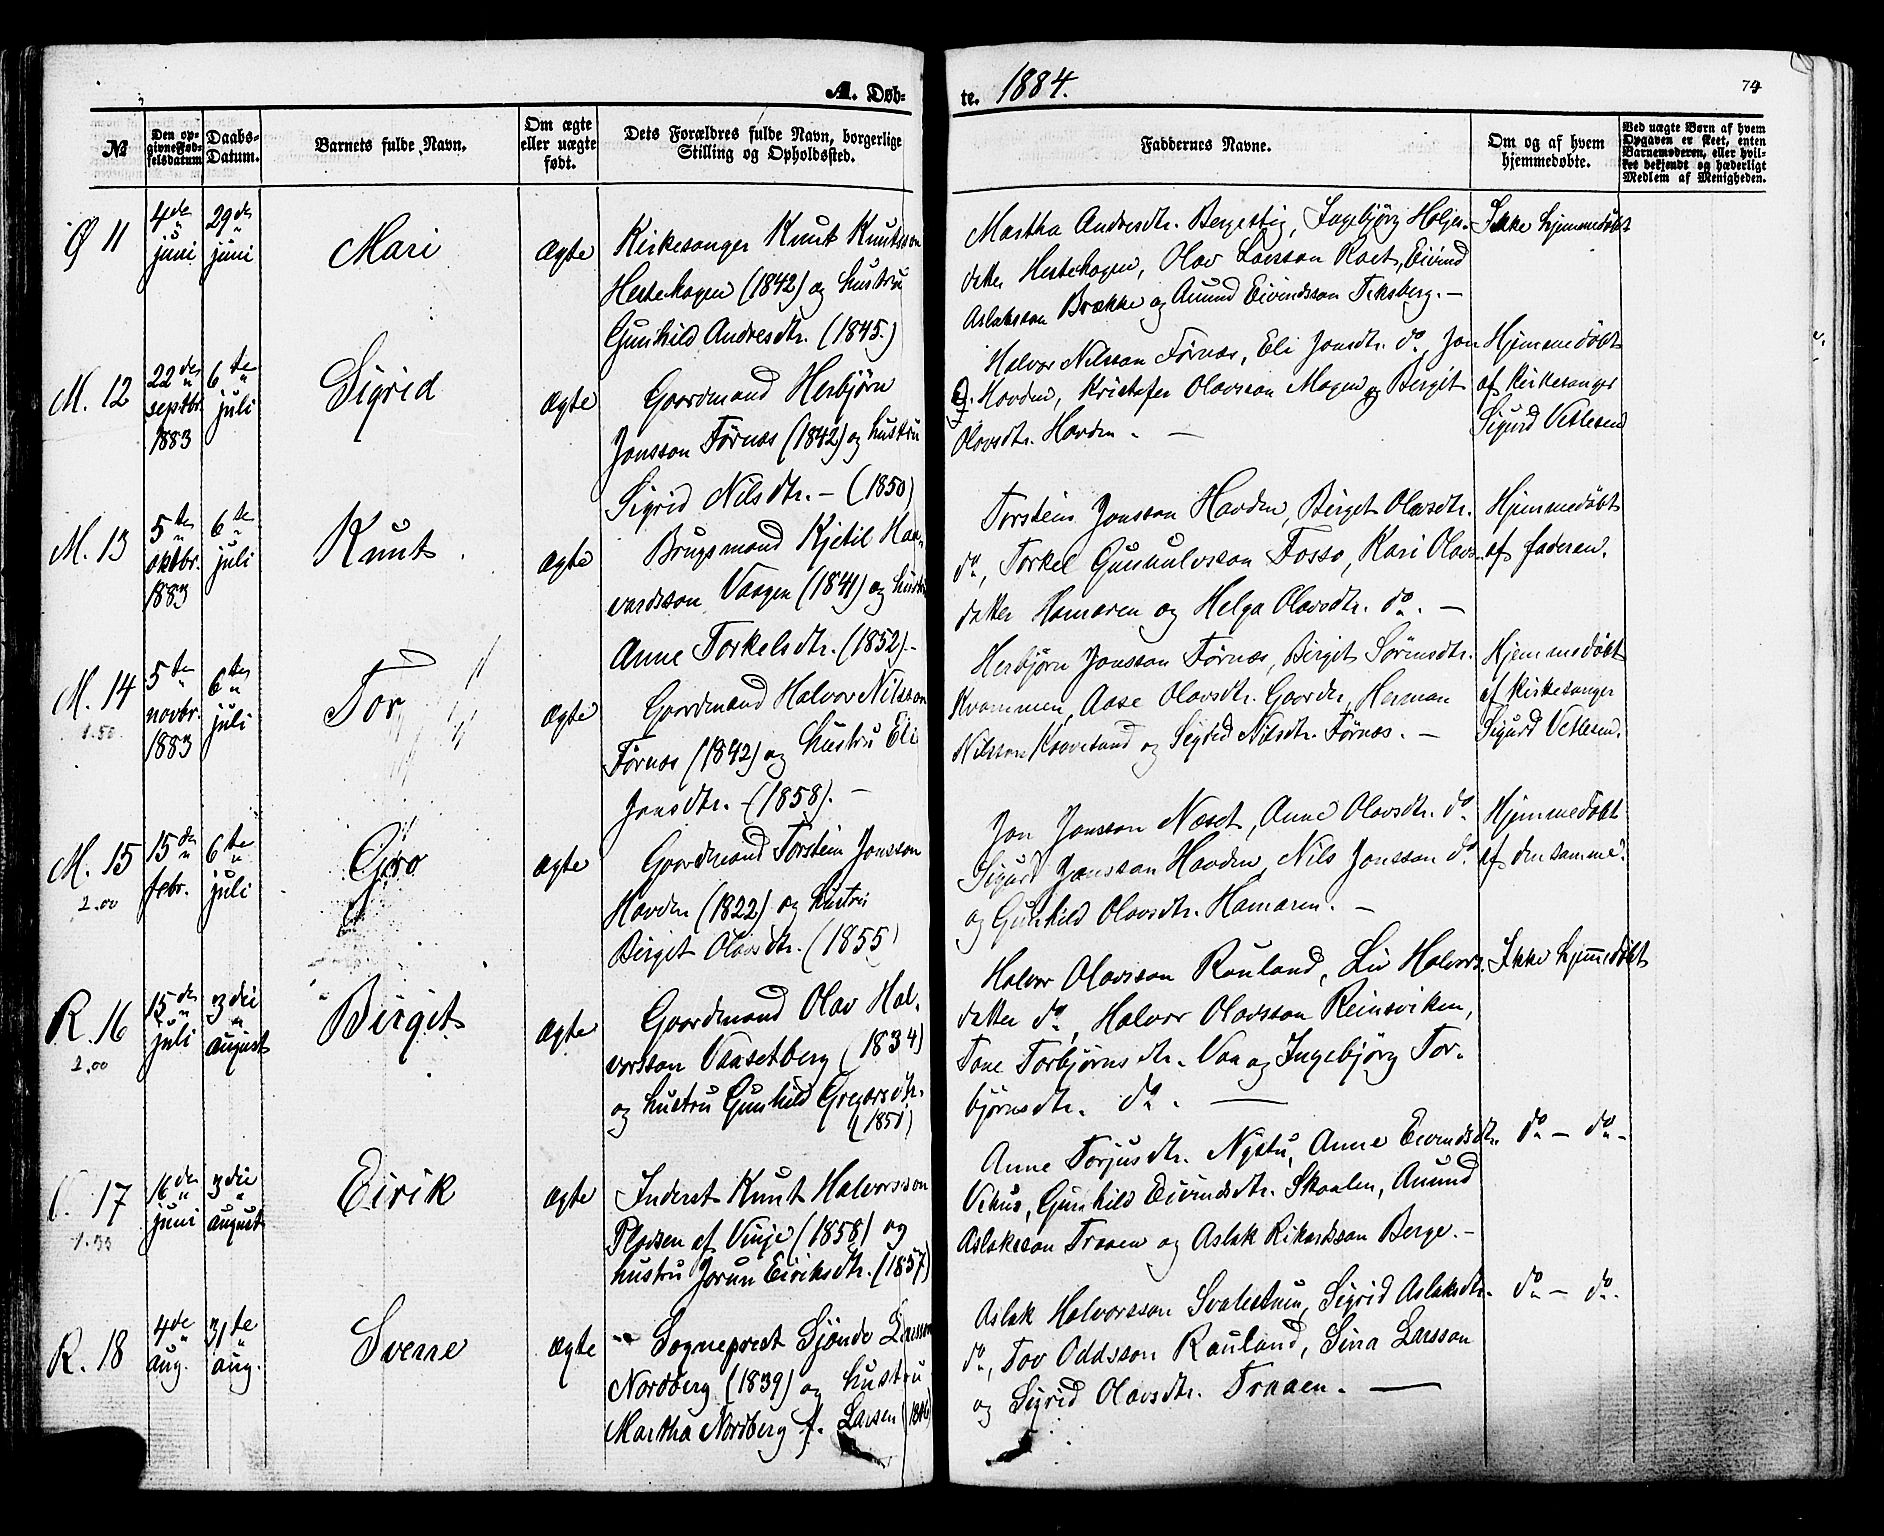 A. Døb-
te. 1884.
74
№
Den op-
givne Fød-
selsdatum
Daabs-
Datum.
Barnets fulde Navn.
Om ægte
eller uægte
født.
Dets Forældres fulde Navn, borgerlige
Stilling og Opholdssted.
Faddernes Navne.
Om og af hvem
hjemmedøbte.
Ved uægte Børn af hvem
Opgaven er skeet, enten
Barnemoderen, eller hvil-
ket bekjendt og hæderligt
Medlem af Menigheden.
Ø 11
4de
juni
29de
juni
Mari
ægte
Kirkesanger Knut Knutsson
Hestehagen (1842) og hustru
Gunhild Andresdtr. (1845.)
Martha Andresdtr. Bergestig, Ingebjørg Holjer-
datter Hestehagen, Olav Larsson Raet, Eivind
Aslaksson Brække og Amund Eivindsson Teksberg. —
Ikke hjemmedøbt
M. 12
22de
septbr.
1883
6te
juli
Sigrid
ægte
Gaardmand Herbjørn
Jonsson Førnæs (1842) og hustru
Sigrid Nilsdtr. — (1850)
Halvor Nilsson Førnæs, Eli Jonsdtr. do, Jon
O. Hovden, Kristofer Olavsson Mogen og Bergit
Olavsdtr. Hovden. —
Hjemmedøbt
af Kirkesanger
Sigurd Vetlesen
M. 13
5te
oktbr.
1883
6te
juli
Knut
ægte
Brugsmand Kjetil Haa-
vardsson Vaagen (1841) og hustru
Anne Torkelsdtr. (1852).-
Torstein Jonsson Hovden, Birget Olavsdtr.
do, Torkel Gunnulvsson Fosso, Kari Olavs-
datter Hamaren og Helga Olavsdtr. do. —
Hjemmedøbt
af faderen.
M. 14
1.50
5te
novbr.
1883
6te
juli
Tor
ægte
Gaardmand Halvor Nilsson
Førnæs (1842) og hustru Eli
Jonsdtr. - (1858). —
Herbjørn Jonsson Førnæs, Birgit Sørensdtr.
Kvammen, Aase Olavsdtr. Gaarder, Herman
Nilsson Kraavesund og Sigrid Nilsdtr. Førnæs. —
Hjemmedøbt
af Kirkesanger
Sigurd Vetlesen.
M. 15
2.00
15de
febr.
6te
juli
Gro
ægte
Gaardmand Torstein Jonsson
Hovden (1822) og hustru
Birget Olavsdtr. (1855)
Jon Jonsson Næset, Anne Olavsdtr. do
Sigurd Jonsson Hovden, Nils Jonsson do
og Gunhild Olavsdtr. Hamaren. —
Hjemmedøbt
af den samme.
R. 16
2.00
15de
juli
3die
august
Birgit
ægte
Gaardmand Olav Hal-
vorsson Vaasetberg (1834)
og hustru Gunhild Gregarsdtr.
(1851)
Halvor Olavsson Rauland, Liv Halvors-
datter do, Halvor Olavsson Reinsviken,
Tone Torbjørnsdtr. Vaa og Ingebjørg Tor-
bjørnsdtr. do. —
Ikke hjemmedøbt
17
1.33
16de
juni
3die
august
Eirik
ægte
Inderst Knut Halvorsson
Plassen af Vinje (1858) og
hustru Jorun Eiriksdtr. (1857)
Anne Torjusdtr. Nystu, Anne Eivindsdtr.
Vehus, Gunhild Eivindsdtr. Skaalen, Amund
Aslaksson Traaen og Aslak Rikardsson Berge. —
do — do -
R. 18
4de
aug.
31te
aug.
Sverre
ægte
Sogneprest Sjønde Larsson
Nordberg (1839) og hustru
Martha Nordberg f. Larsen (1846)
Aslak Halvorsson Svalestuen, Sigrid Aslaksdtr.
do, Tov Oddsson Rauland, Sina Larsson
og Sigrid Olavsdtr. Traaen. —
do — do.